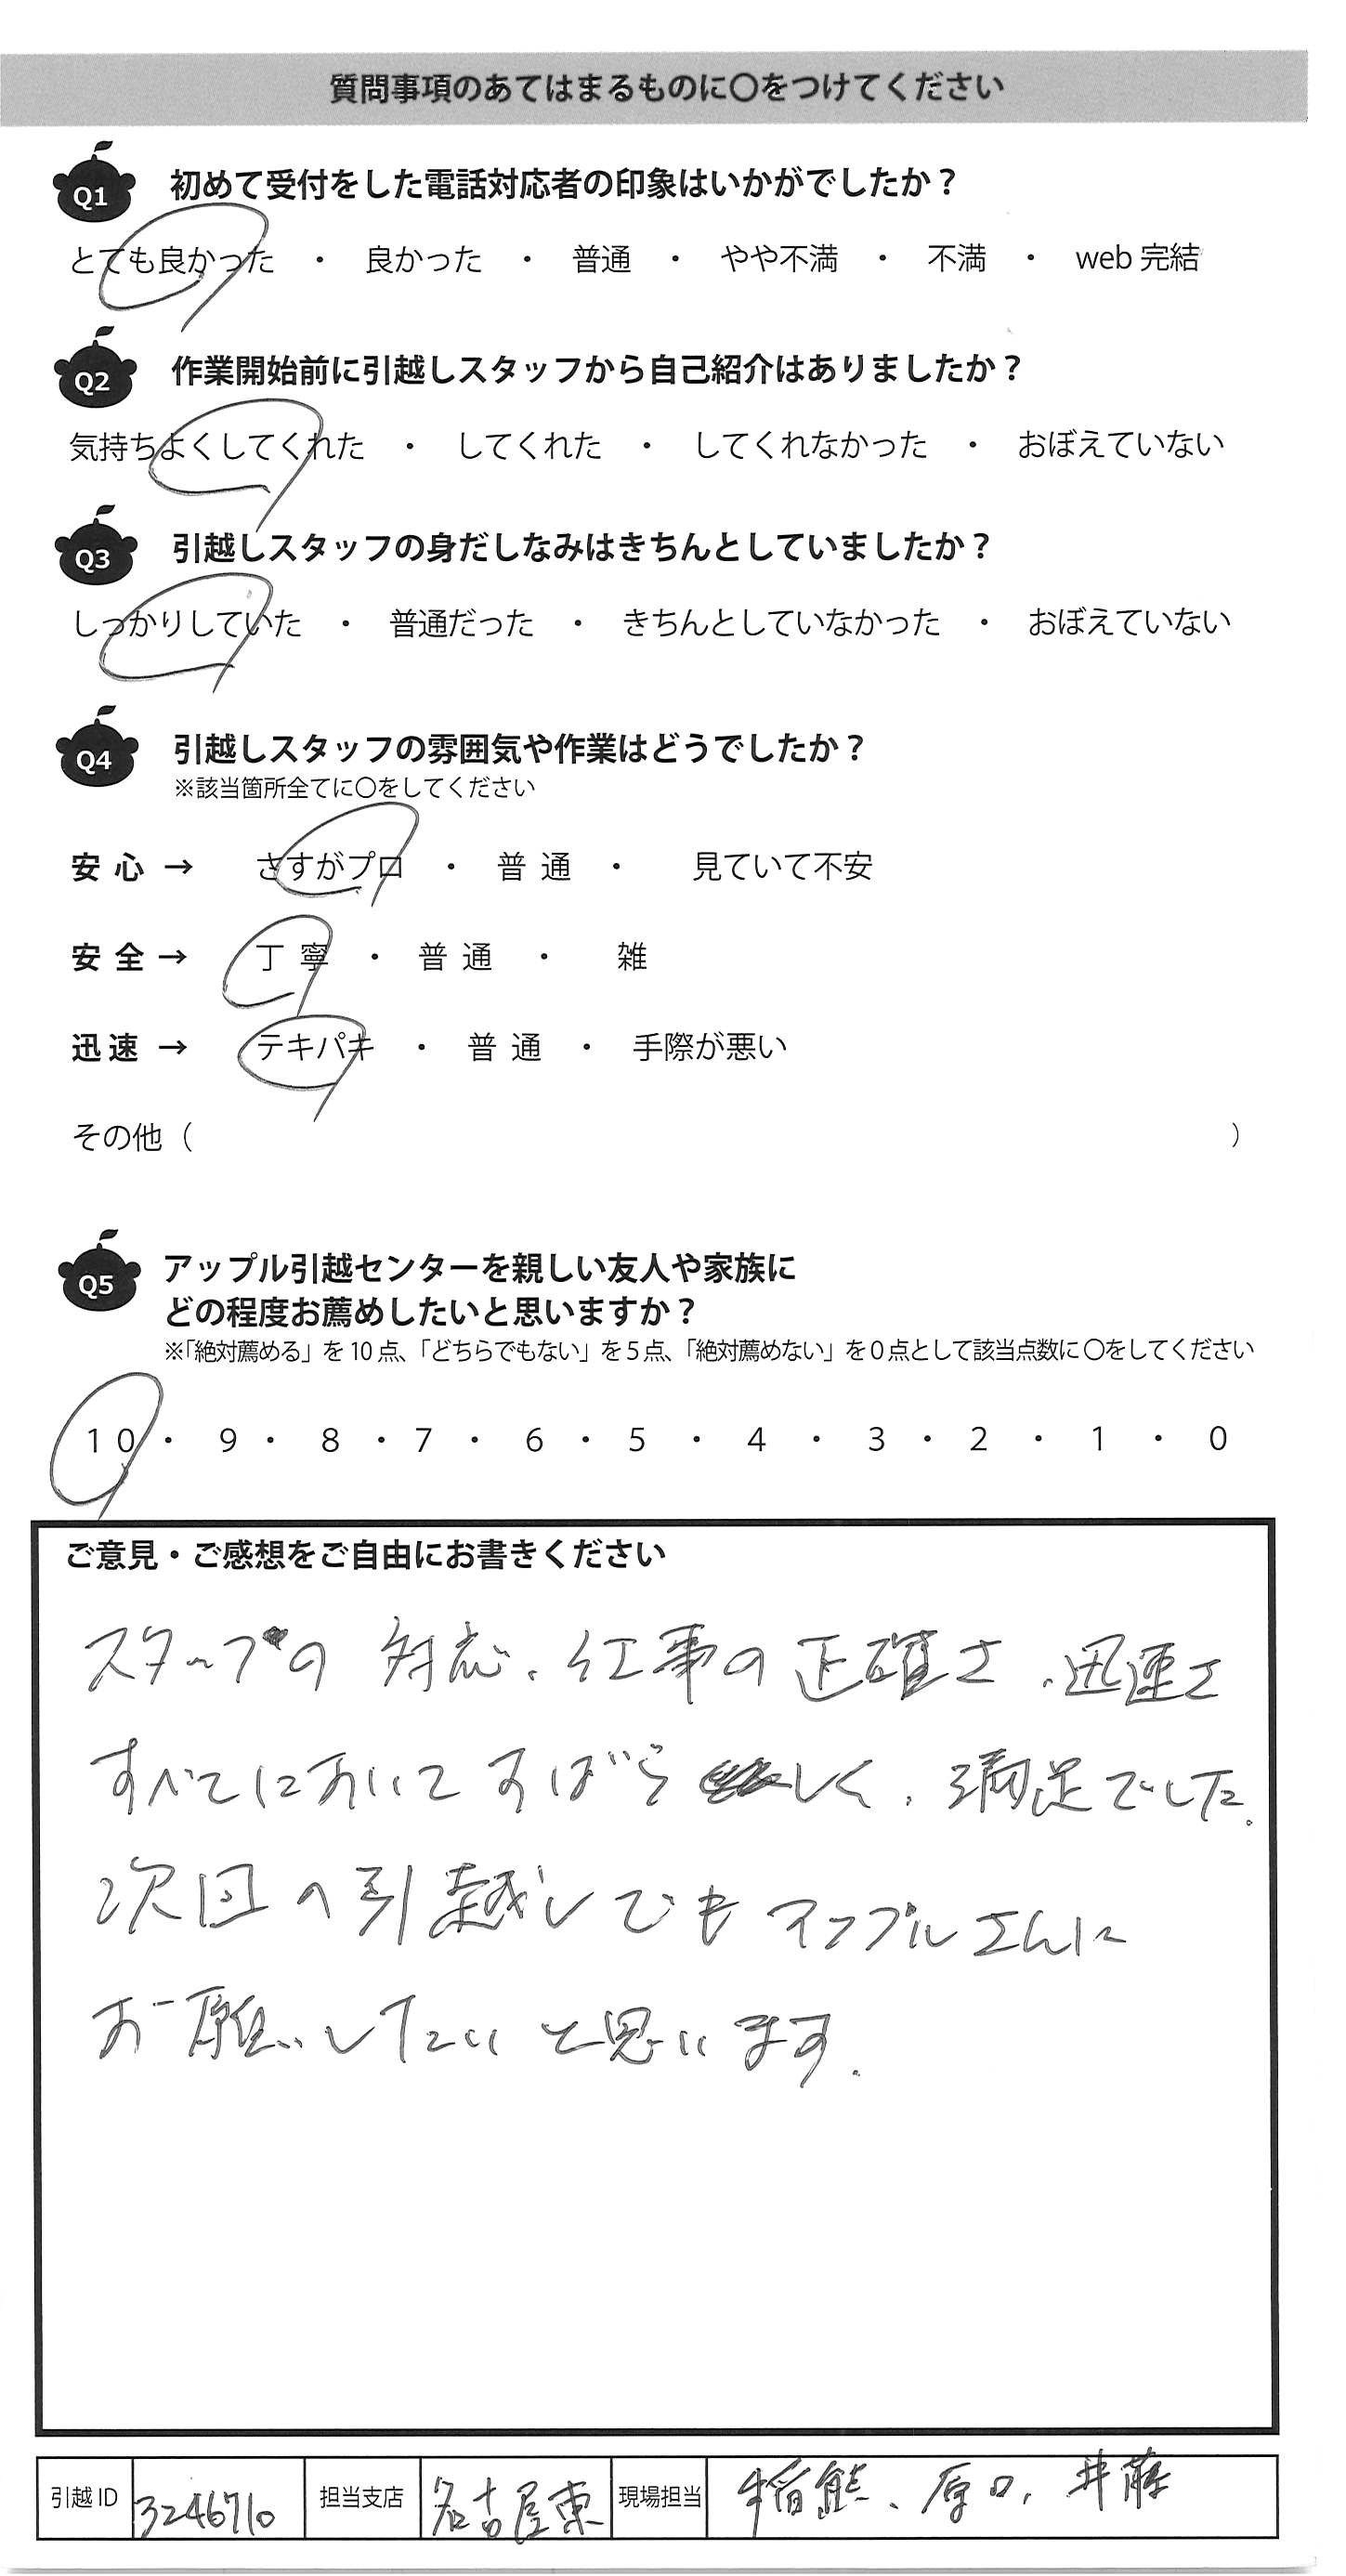 質問事項のあてはまるものに〇をつけてください
Q1 初めて受付をした電話対応者の印象はいかがでしたか？
とても良かった ・ 良かった ・ 普通 ・ やや不満 ・ 不満 ・ web 完結
Q2 作業開始前に引越しスタッフから自己紹介はありましたか？
気持ちよくしてくれた ・ してくれた ・ してくれなかった ・ おぼえていない
Q3 引越しスタッフの身だしなみはきちんとしていましたか？
しっかりしていた ・ 普通だった ・ きちんとしていなかった ・ おぼえていない
Q4 引越しスタッフの雰囲気や作業はどうでしたか？
※該当箇所全てに〇をしてください
安心 → さすがプロ ・ 普通 ・ 見ていて不安
安全 → 丁寧 ・ 普通 ・ 雑
迅速 → テキパキ ・ 普通 ・ 手際が悪い
その他（ ）
Q5 アップル引越センターを親しい友人や家族に
どの程度お薦めしたいと思いますか？
※「絶対薦める」を 10 点、「どちらでもない」を 5 点、「絶対薦めない」を 0 点として該当点数に 〇をしてください
10 ・ 9 ・ 8 ・ 7 ・ 6 ・ 5 ・ 4 ・ 3 ・ 2 ・ 1 ・ 0
ご意見・ご感想をご自由にお書きください
スタッフの 対応、仕事の正確さ、迅速さ
すべてにおいて すばらしく、満足でした。
次回の引越しでも アップルさんに
お願いしたいと思います。
引越 ID 3246710 担当支店 名古屋東 現場担当 稲熊、原口、井藤